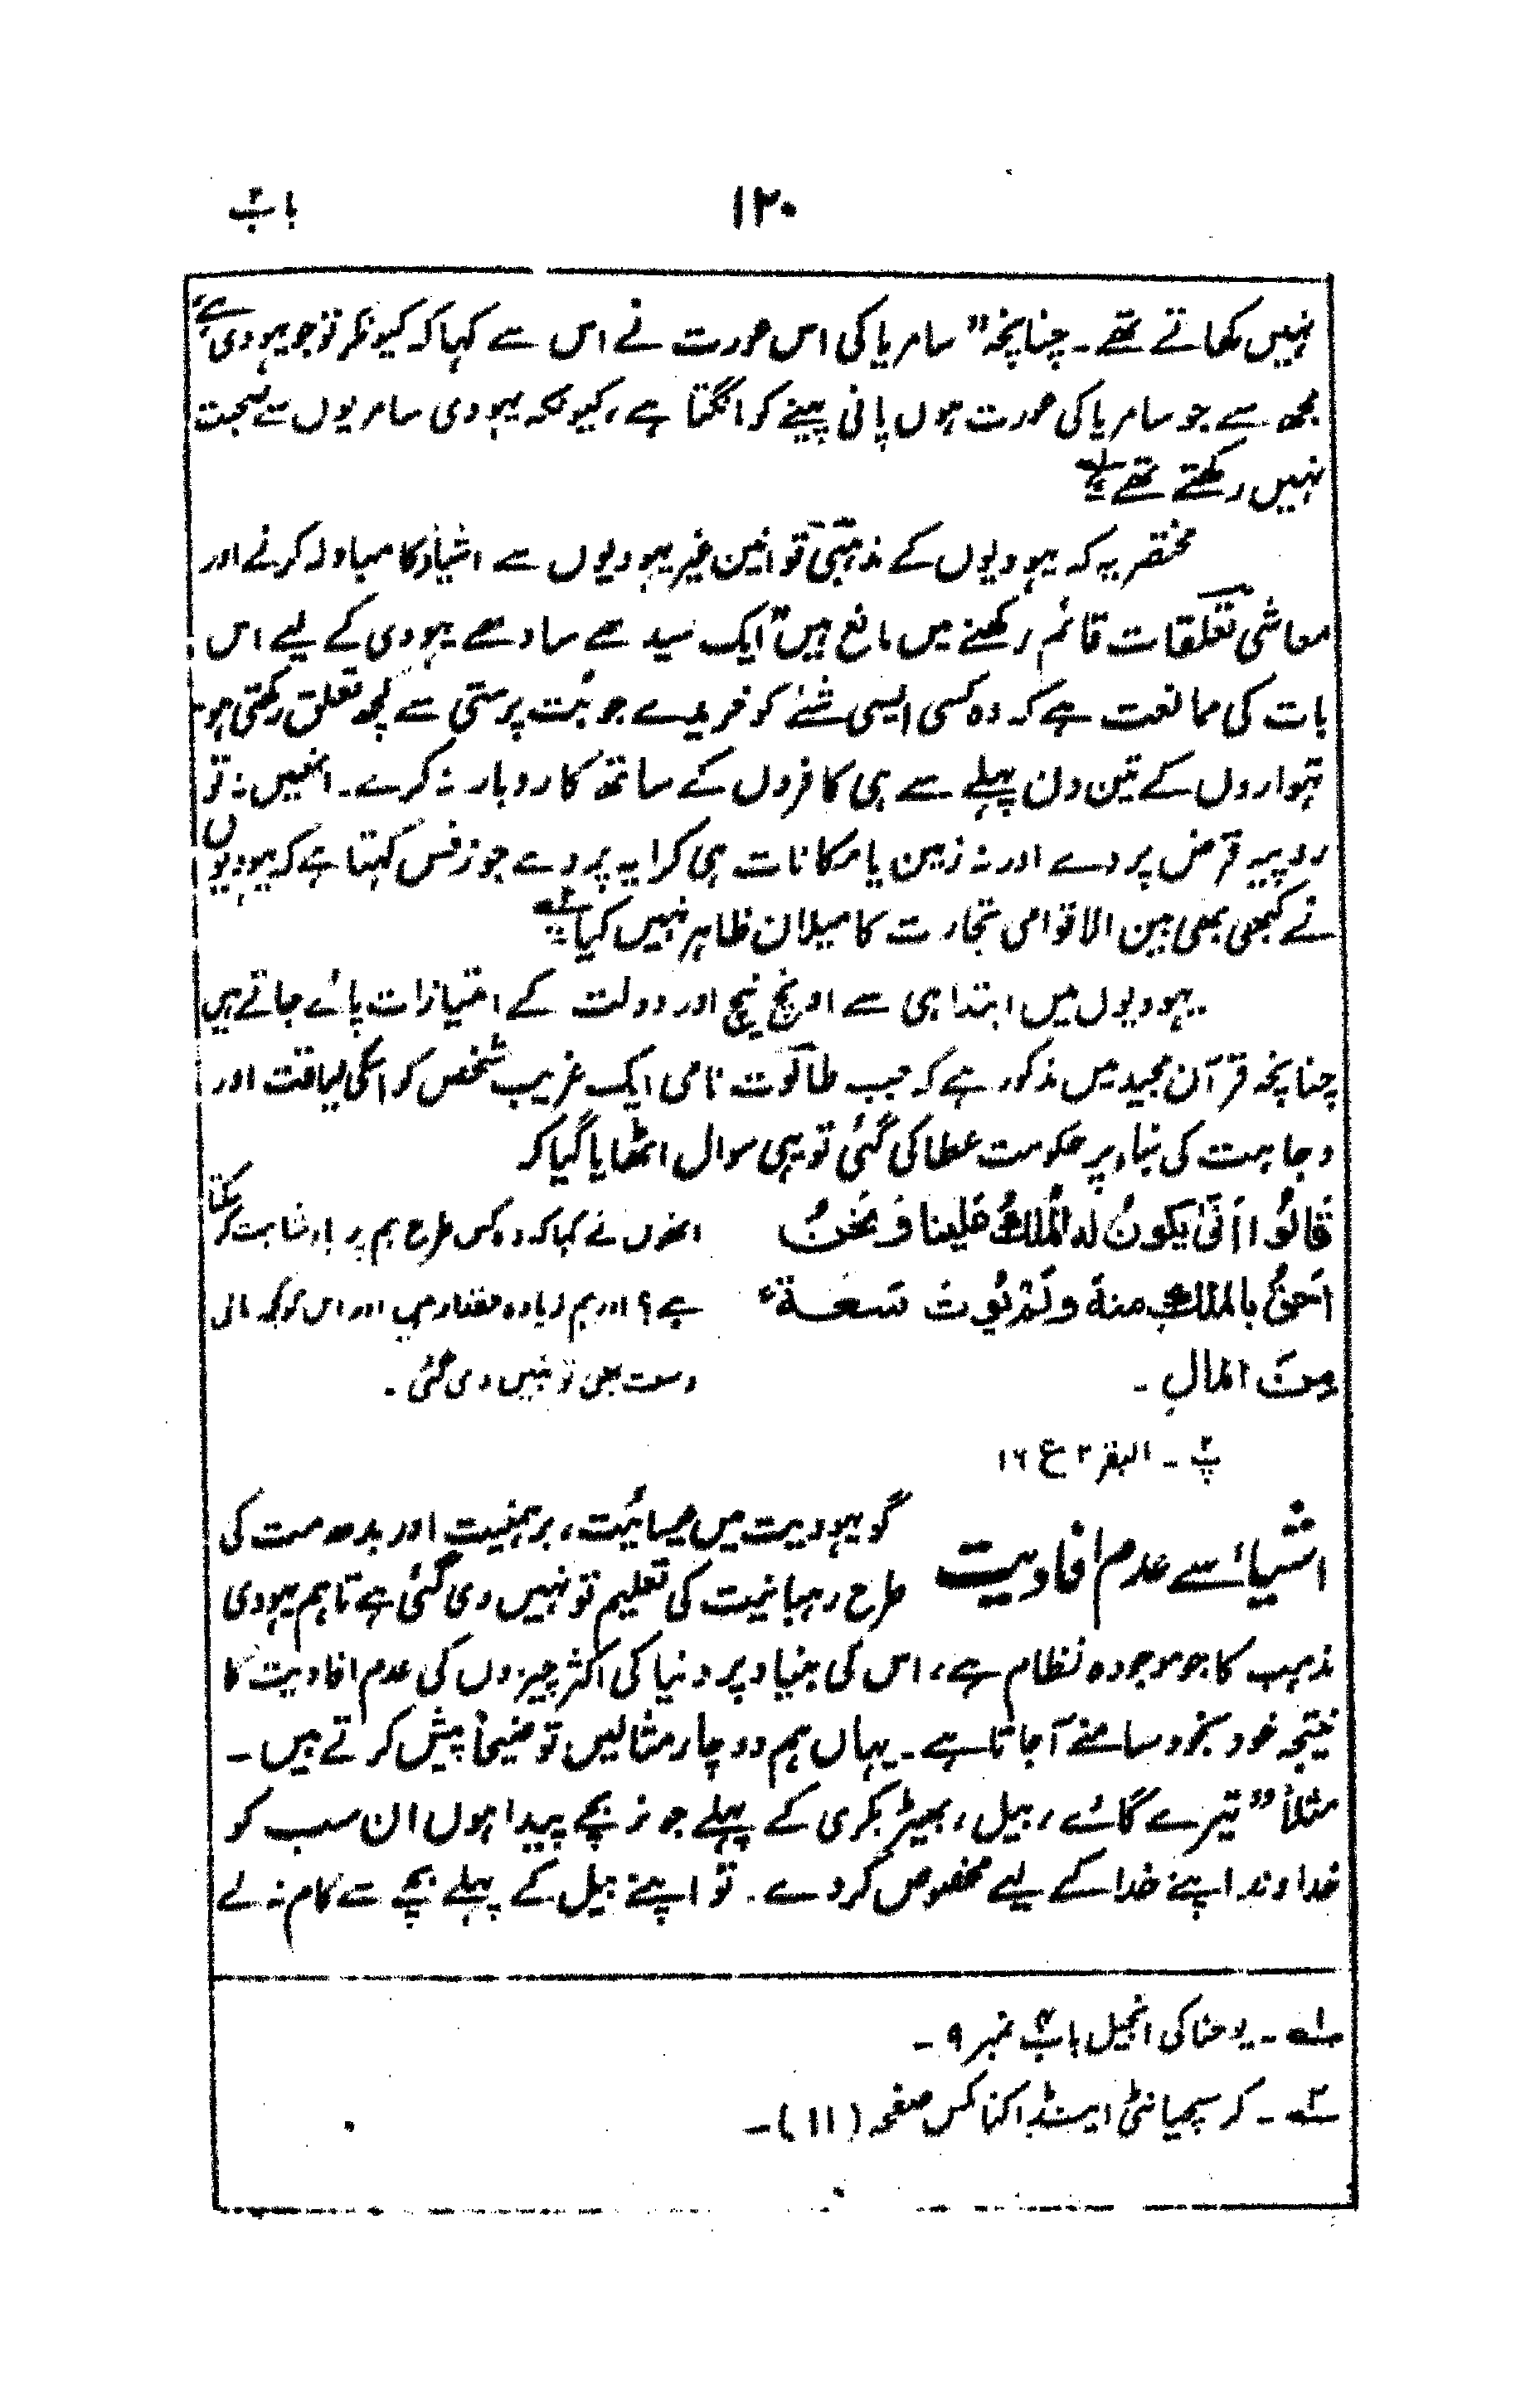 ۱۲۰
باب ۲
نہیں کھاتے تھے۔ چنانچہ ”سامریا کی اس عورت نے اس سے کہا کہ کیونکر تو جو یہودی ہے
مجھ سے جو سامریا کی عورت ہوں پانی پینے کو مانگتا ہے، کیونکہ یہودی سامریوں سے صحبت
نہیں رکھتے تھے“ ۱؎
مختصر یہ کہ یہودیوں کے مذہبی قوانین غیر یہودیوں سے اشیاء کا مبادلہ کرنے اور
معاشی تعلقات قائم رکھنے میں مانع ہیں ”ایک سیدھے سادھے یہودی کے لیے اس
بات کی ممانعت ہے کہ وہ کسی ایسی شئے کو خریدے جو بُت پرستی سے کچھ تعلق رکھتی ہو۔
تہواروں کے تین دن پہلے سے ہی کافروں کے ساتھ کاروبار نہ کرے۔ انھیں نہ تو
روپیہ قرض پر دے اور نہ زمین یا مکانات ہی کرایہ پر دے جوزفس کہتا ہے کہ یہودیوں
نے کبھی بھی بین الاقوامی تجارت کا میلان ظاہر نہیں کیا“ ۲؎
یہودیوں میں ابتدا ہی سے اونچ نیچ اور دولت کے امتیازات پائے جاتے ہیں
چنانچہ قرآن مجید میں مذکور ہے کہ جب طالُوت نامی ایک غریب شخص کو اسکی لیاقت اور
وجاہت کی بناء پر حکومت عطا کی گئی تو یہی سوال اٹھایا گیا کہ
قَالُوا اَنّٰی یَکونُ لَہ الْمُلکُ عَلینا وَ نَحنُ
اَحَقُّ بالملکِ منہُ وَلَمْ یُوتَ سَعۃً
مِنَ المَالِ ۔
انھوں نے کہا کہ وہ کس طرح ہم پر بادشاہت کر سکتا
ہے؟ اور ہم زیادہ حقدار ہیں اور اس کو کچھ مالی
وسعت بھی تو نہیں دی گئی ۔
پ۲ ۔ البقر ۲ ع ۱۶
اشیاء سے عدم افادیت
گو یہودیت میں عیسائیت، برہمنیت اور بدھ مت کی
طرح رہبانیت کی تعلیم تو نہیں دی گئی ہے تاہم یہودی
مذہب کا جو موجودہ نظام ہے، اس کی بنیاد پر دنیا کی اکثر چیزوں کی عدم افادیت کا
نتیجہ خود بخود سامنے آجاتا ہے۔ یہاں ہم دو چار مثالیں توضیحاً پیش کرتے ہیں ۔
مثلاً ”تیرے گائے، بیل، بھیڑ بکری کے پہلے جو نر بچے پیدا ہوں ان سب کو
خداوند اپنے خدا کے لیے مخصوص کر دے۔ تو اپنے بیل کے پہلے بچے سے کام نہ لے
۱؎ ۔ یوحنا کی انجیل باب ۴ نمبر ۹ ۔
۲؎ ۔ کرسچیانٹی اینڈ اکنامکس صفحہ (۱۱) ۔